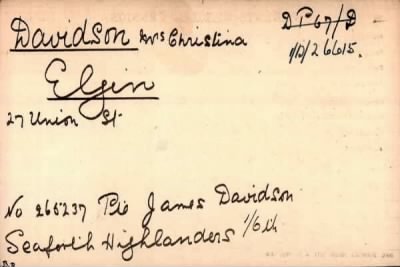 Davidson Mrs Christina
DP 67/D
1/D/26615.
Elgin
27 Union St.
No 265237 Pte James Davidson
Seaforth Highlanders 1/6th